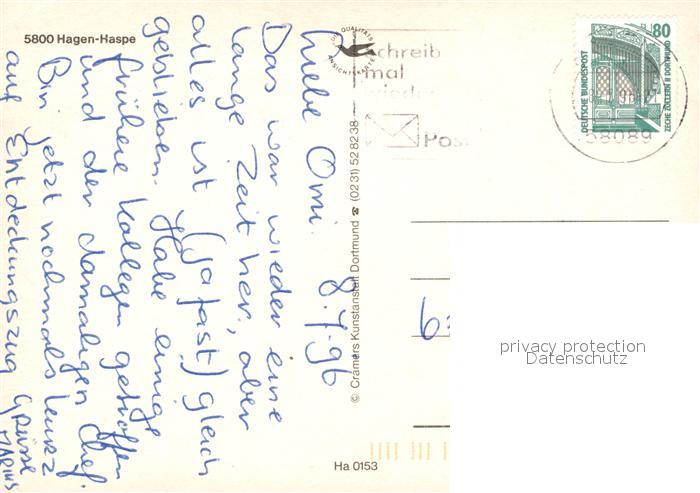 5800 Hagen-Haspe
Liebe Omi. 8.7.96
Das war wieder eine
lange Zeit her, aber
alles ist (ja fast) gleich
geblieben. Habe einige
frühere Kollegen getroffen
und den damaligen Chef.
Bin jetzt nochmals kurz
auf Entdeckungszug Grüsse
MARIUS
QUALITÄTS
ANSICHTSKARTE
© Cramers Kunstanstalt Dortmund ☎ (0231) 528238
Schreib
mal
wieder
Post
80
DEUTSCHE BUNDESPOST
ZECHE ZOLLERN II DORTMUND
58089
6
privacy protection
Datenschutz
Ha 0153